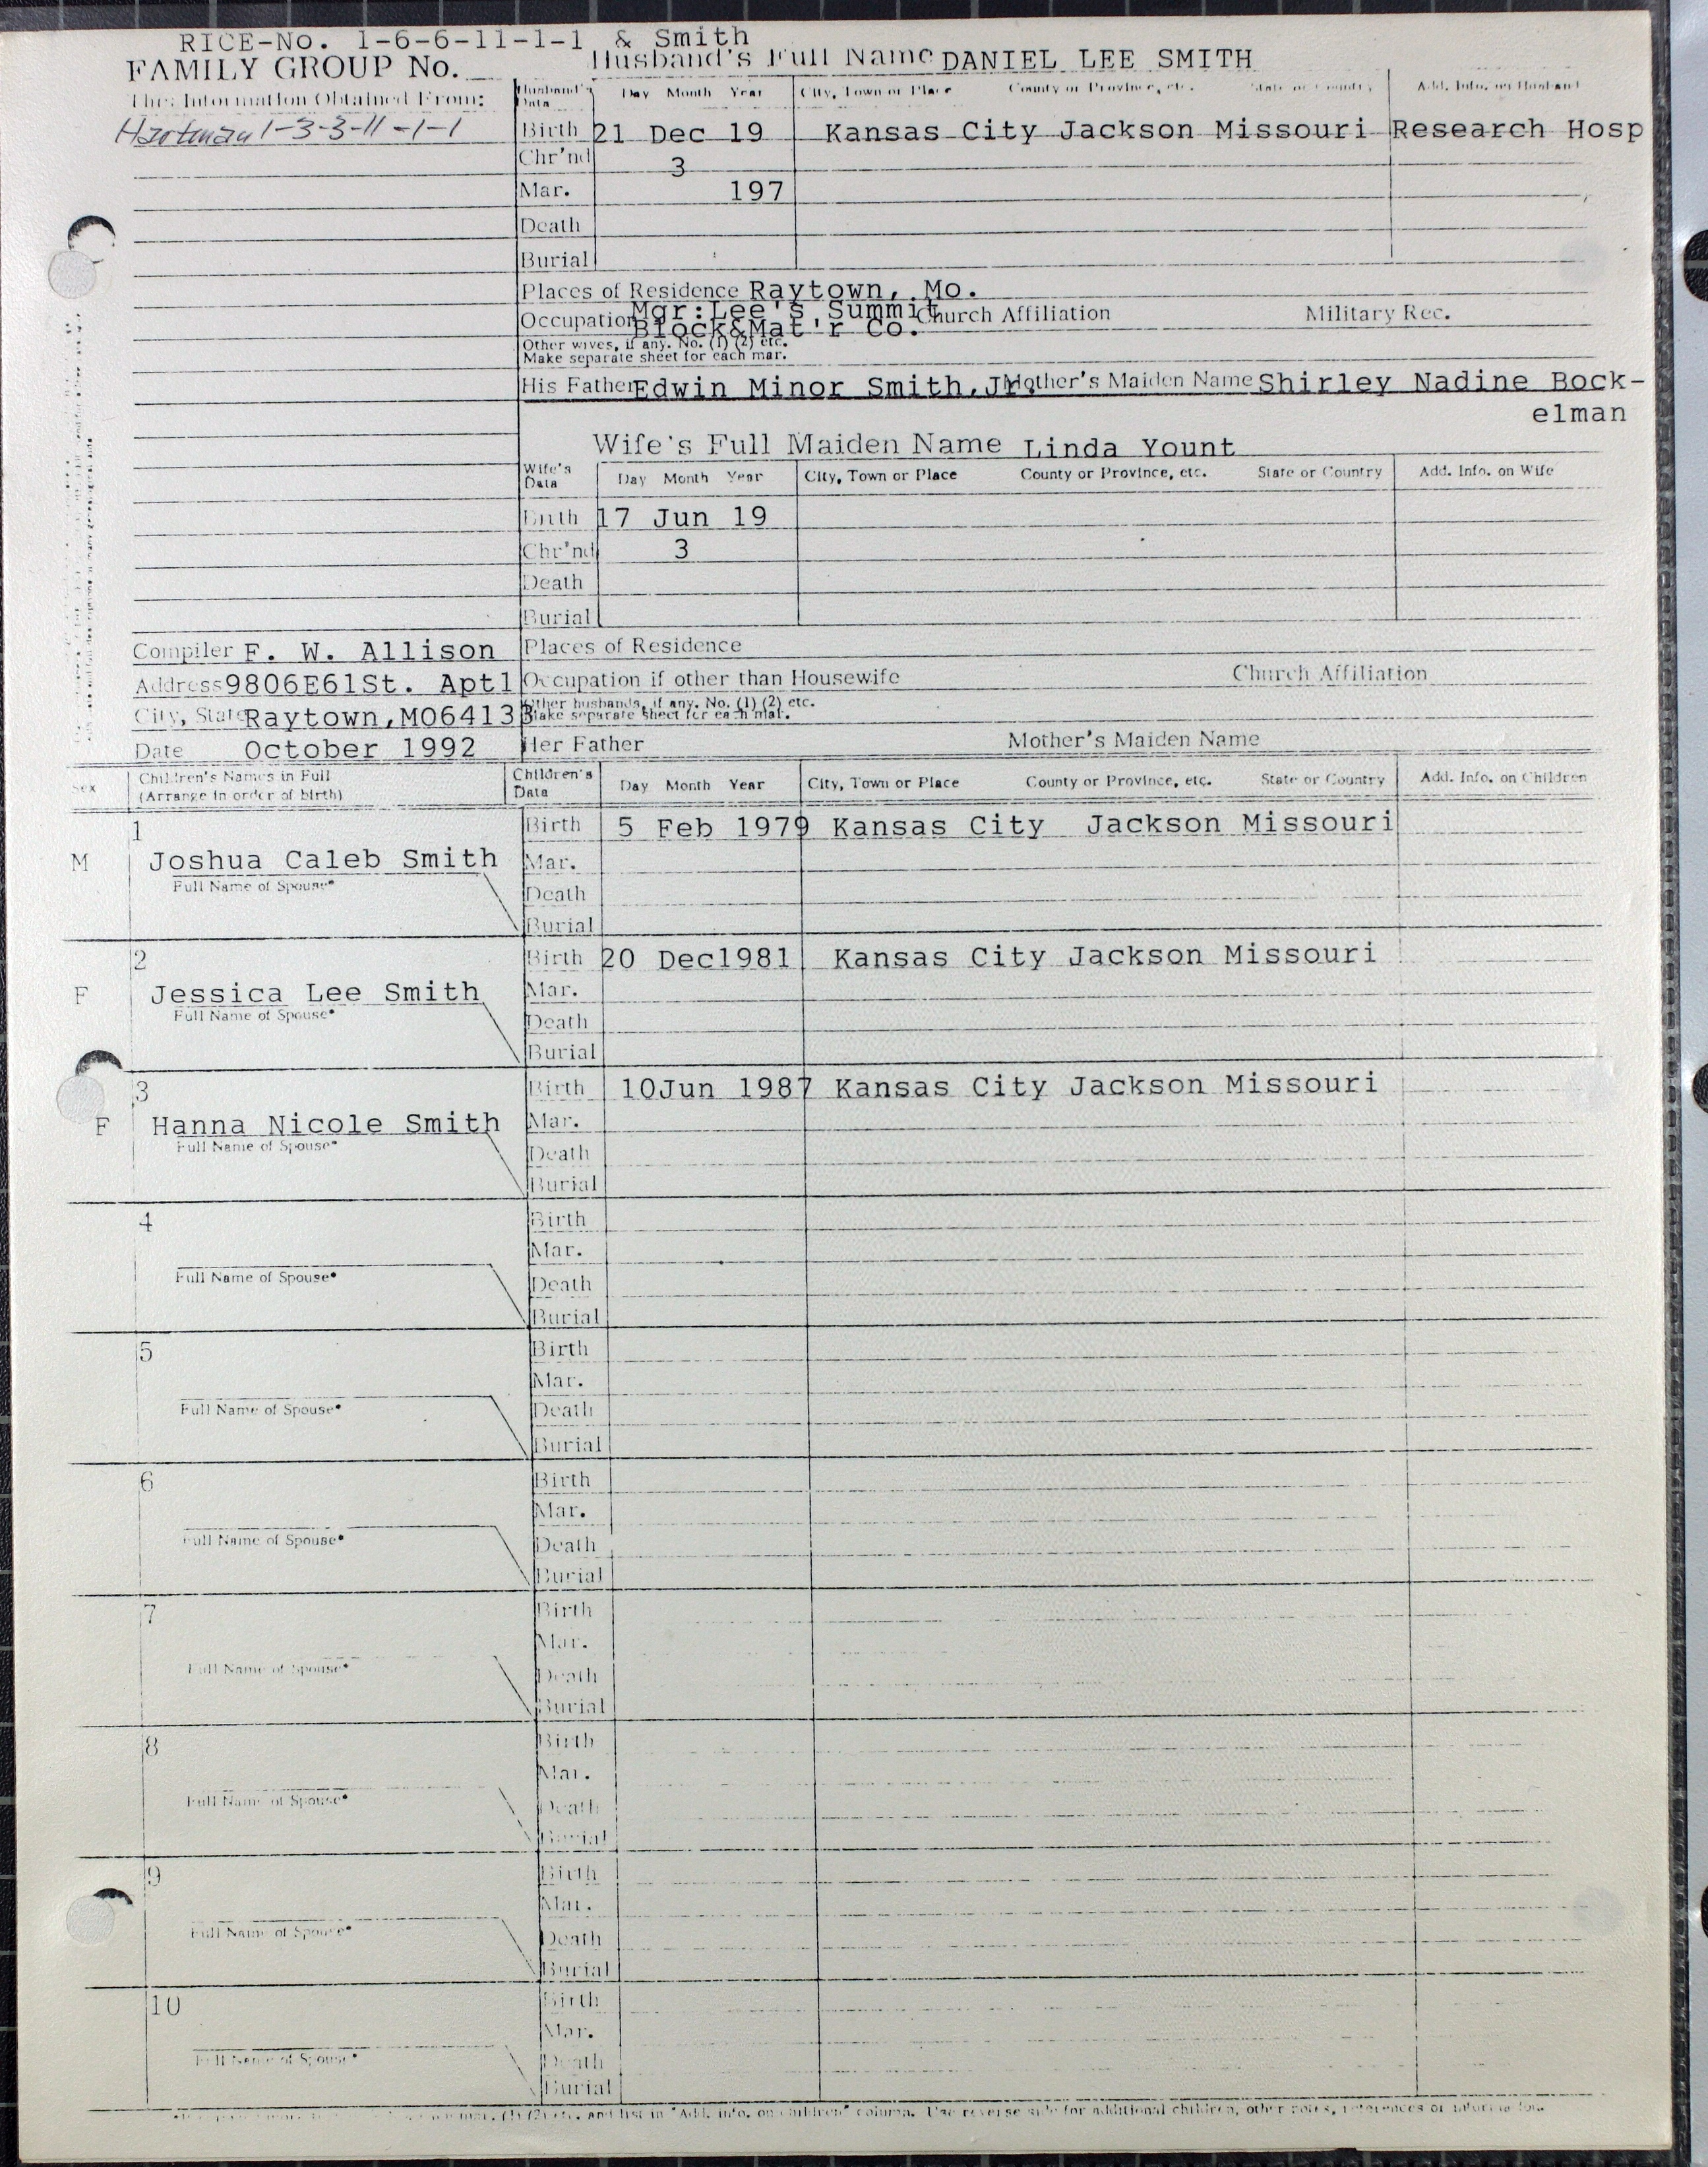 RICE-No. 1-6-6-11-1-1 & Smith
FAMILY GROUP No. Husband's Full Name DANIEL LEE SMITH
This Information Obtained From: Husband's Data Day Month Year City, Town or Place County or Province, etc. State or Country Add. Info. on Husband
Hartman 1-3-3-11-1-1 Birth 21 Dec 19 Kansas City Jackson Missouri Research Hosp
Chr'nd 3
Mar. 197
Death
Burial
Places of Residence Raytown, Mo.
Occupation Mgr:Lee's Summit Block&Mat'r Co. Church Affiliation Military Rec.
Other wives, if any. No. (1) (2) etc.
Make separate sheet for each mar.
His Father Edwin Minor Smith,Jr. Mother's Maiden Name Shirley Nadine Bock-
elman
Wife's Full Maiden Name Linda Yount
Wife's Data Day Month Year City, Town or Place County or Province, etc. State or Country Add. Info. on Wife
Birth 17 Jun 19
Chr'nd 3
Death
Burial
Compiler F. W. Allison Places of Residence
Address 9806E61St. Apt1 Occupation if other than Housewife Church Affiliation
City, State Raytown,MO64133 Other husbands, if any. No. (1) (2) etc.
Make separate sheet for each mar.
Date October 1992 Her Father Mother's Maiden Name
Sex Children's Names in Full (Arrange in order of birth) Children's Data Day Month Year City, Town or Place County or Province, etc. State or Country Add. Info. on Children
1 Birth 5 Feb 1979 Kansas City Jackson Missouri
M Joshua Caleb Smith Mar.
Full Name of Spouse* Death
Burial
2 Birth 20 Dec1981 Kansas City Jackson Missouri
F Jessica Lee Smith Mar.
Full Name of Spouse* Death
Burial
3 Birth 10Jun 1987 Kansas City Jackson Missouri
F Hanna Nicole Smith Mar.
Full Name of Spouse* Death
Burial
4 Birth
Mar.
Full Name of Spouse* Death
Burial
5 Birth
Mar.
Full Name of Spouse* Death
Burial
6 Birth
Mar.
Full Name of Spouse* Death
Burial
7 Birth
Mar.
Full Name of Spouse* Death
Burial
8 Birth
Mar.
Full Name of Spouse* Death
Burial
9 Birth
Mar.
Full Name of Spouse* Death
Burial
10 Birth
Mar.
Full Name of Spouse* Death
Burial
mar. (1) (2) etc. and list in "Add. info. on children" column. Use reverse side for additional children, other notes, references or information.